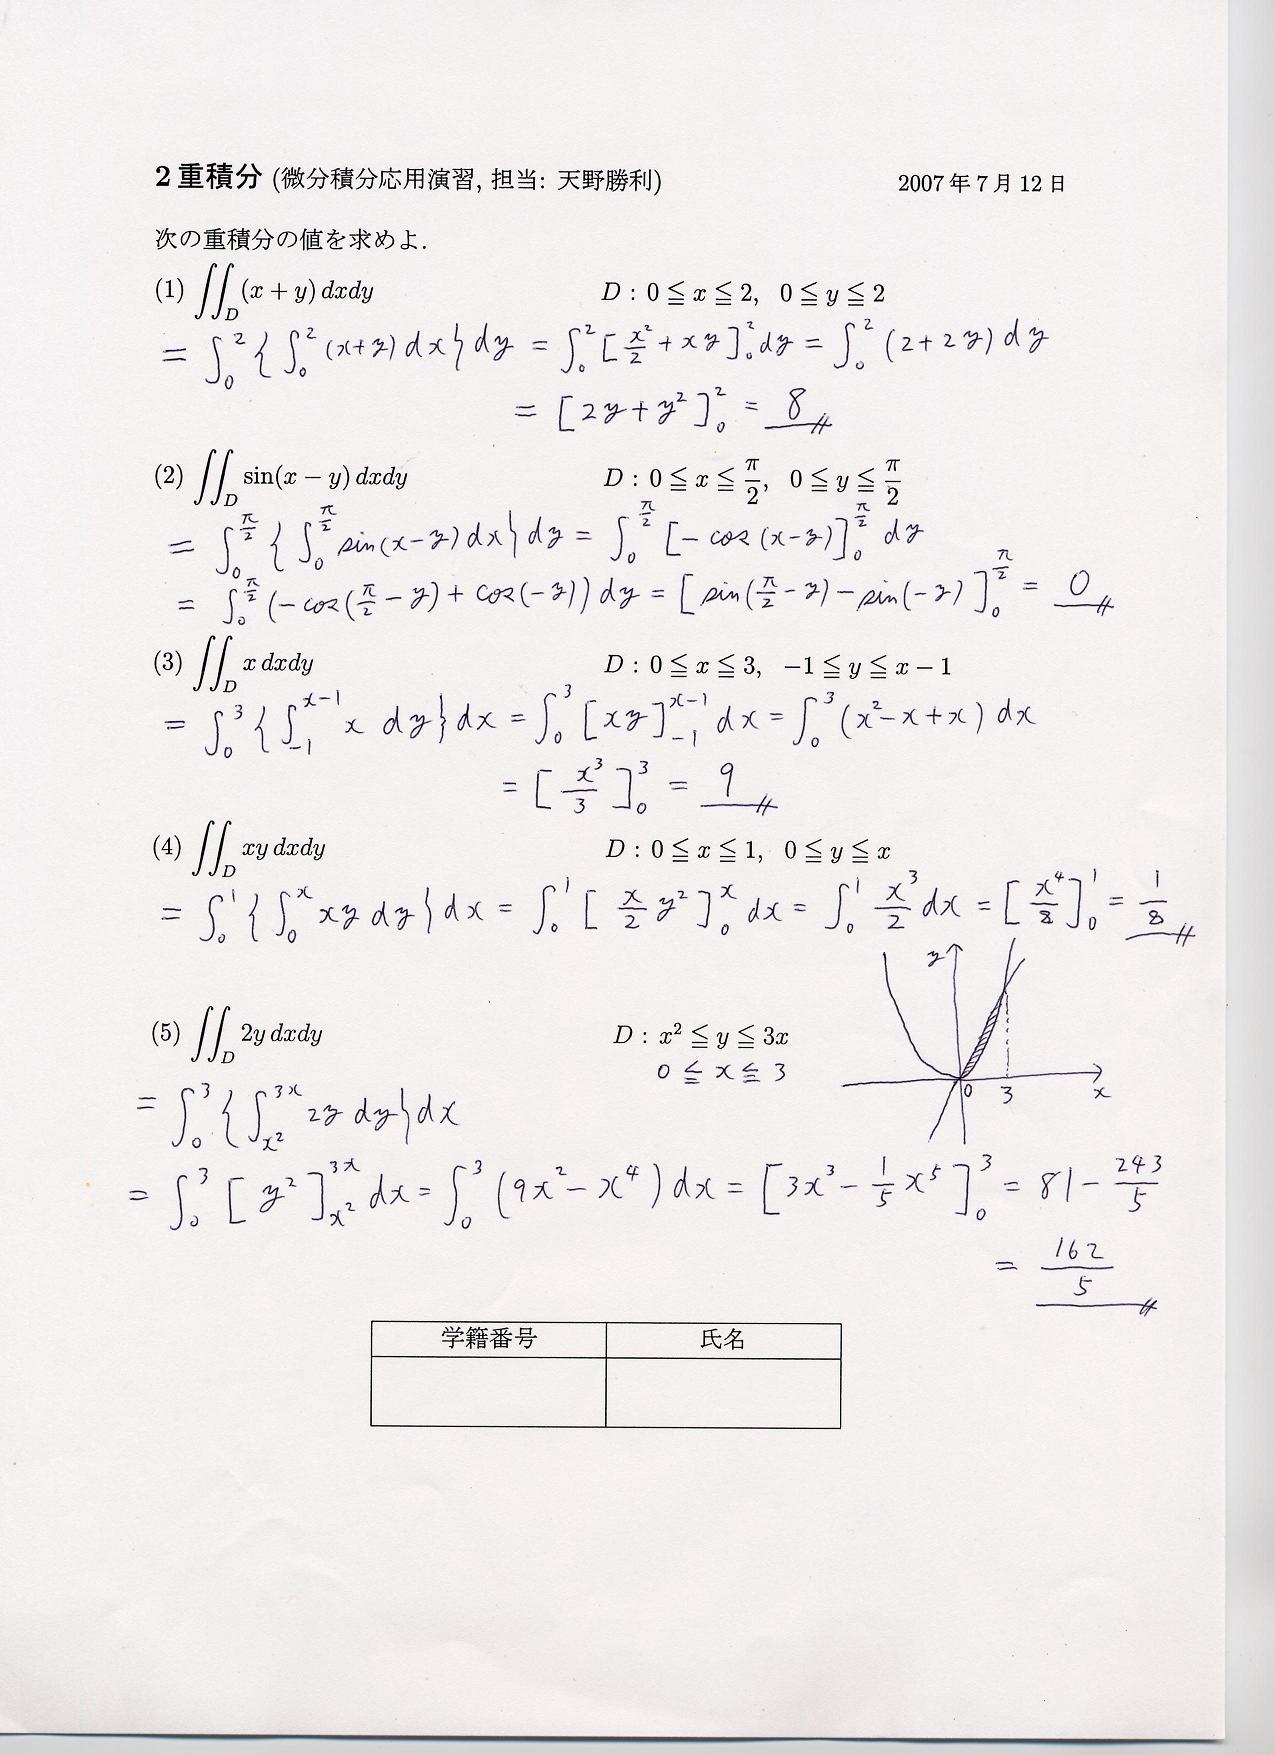 2重積分 (微分積分応用演習, 担当: 天野勝利) 2007年7月12日
次の重積分の値を求めよ.
(1) ∬_D (x + y) dxdy D : 0 ≦ x ≦ 2, 0 ≦ y ≦ 2
= ∫_0^2 { ∫_0^2 (x+y) dx } dy = ∫_0^2 [ x²/2 + xy ]_0^2 dy = ∫_0^2 (2+2y) dy
= [ 2y + y² ]_0^2 = 8
(2) ∬_D sin(x − y) dxdy D : 0 ≦ x ≦ π/2, 0 ≦ y ≦ π/2
= ∫_0^{π/2} { ∫_0^{π/2} sin(x−y) dx } dy = ∫_0^{π/2} [ −cos(x−y) ]_0^{π/2} dy
= ∫_0^{π/2} (−cos(π/2 − y) + cos(−y)) dy = [ sin(π/2 − y) − sin(−y) ]_0^{π/2} = 0
(3) ∬_D x dxdy D : 0 ≦ x ≦ 3, −1 ≦ y ≦ x − 1
= ∫_0^3 { ∫_{−1}^{x−1} x dy } dx = ∫_0^3 [ xy ]_{−1}^{x−1} dx = ∫_0^3 (x² − x + x) dx
= [ x³/3 ]_0^3 = 9
(4) ∬_D xy dxdy D : 0 ≦ x ≦ 1, 0 ≦ y ≦ x
= ∫_0^1 { ∫_0^x xy dy } dx = ∫_0^1 [ x/2 y² ]_0^x dx = ∫_0^1 x³/2 dx = [ x⁴/8 ]_0^1 = 1/8
y
(5) ∬_D 2y dxdy D : x² ≦ y ≦ 3x
0 ≦ x ≦ 3
0 3 x
= ∫_0^3 { ∫_{x²}^{3x} 2y dy } dx
= ∫_0^3 [ y² ]_{x²}^{3x} dx = ∫_0^3 (9x² − x⁴) dx = [ 3x³ − 1/5 x⁵ ]_0^3 = 81 − 243/5
= 162/5
学籍番号 氏名